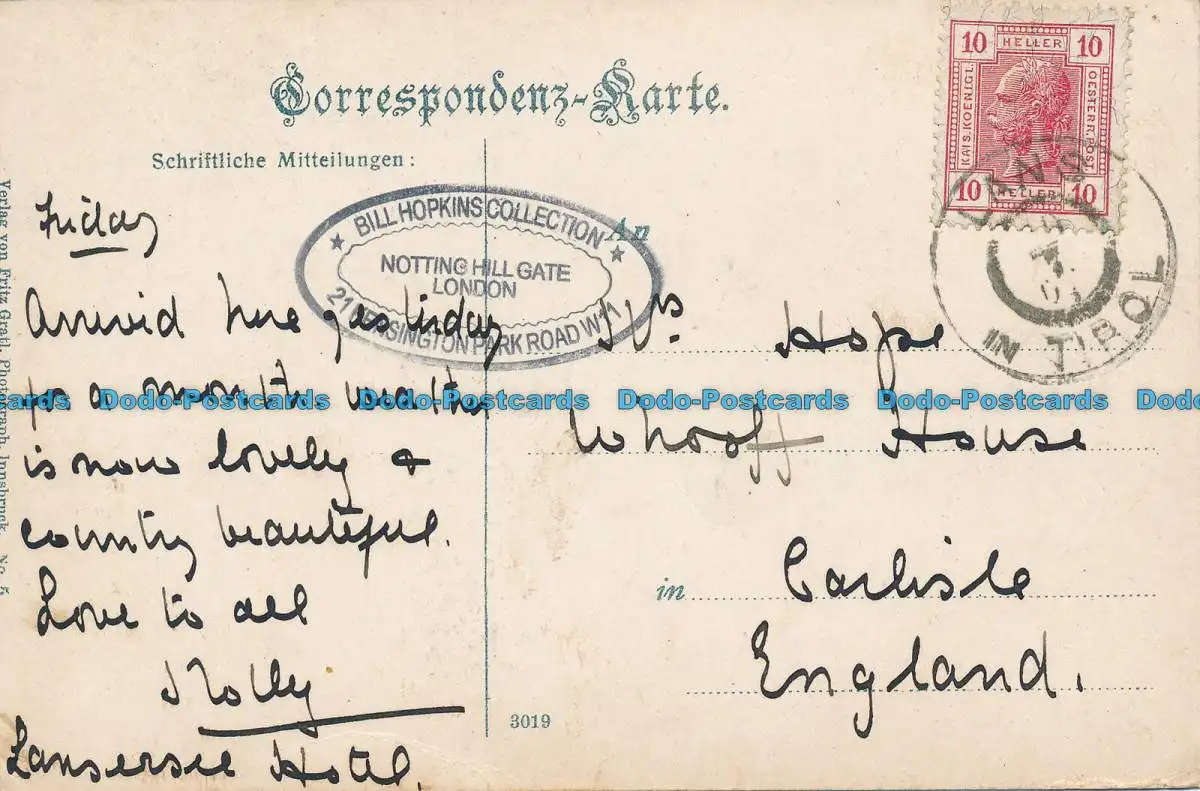 Correspondenz-Karte.
Schriftliche Mitteilungen:
Friday
Arrived here yesterday
for a month. weather
is now lovely &
country beautiful.
Love to all
Molly
Lansersee Hotel.
An
Mrs Hope
Whooff House
in Carlisle
England.
3019
Verlag von Fritz Gratl, Photograph, Innsbruck. No 5
10 HELLER 10
KAIS. KOENIGL.
OESTERR. POST
10 HELLER 10
LANS
IN TIROL
BILL HOPKINS COLLECTION
NOTTING HILL GATE
LONDON
21 KENSINGTON PARK ROAD W11
Dodo-Postcards Dodo-Postcards Dodo-Postcards Dodo-Postcards Dodo-Postcards